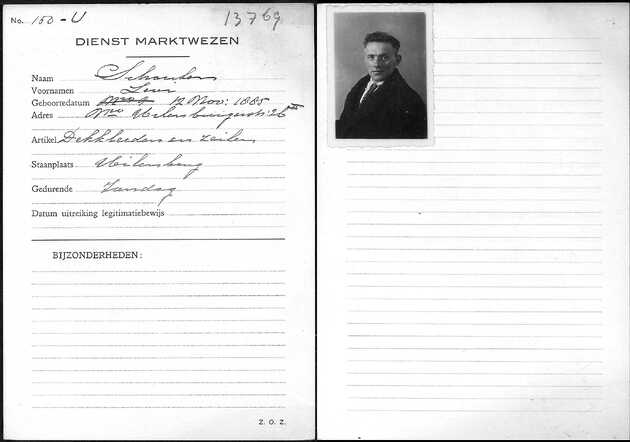 No. 150-U 13769
DIENST MARKTWEZEN
Naam Schouten
Voornamen Leen
Geboortedatum 12 Nov: 1885
Adres 26 III
Artikel Dekkleeden en zeilen
Staanplaats Uilenburg
Gedurende Zondag
Datum uitreiking legitimatiebewijs
BIJZONDERHEDEN:
Z. O. Z.